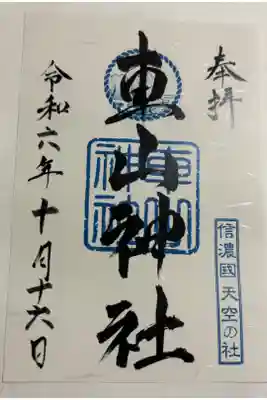 奉拝
車山神社
車山
神社
信濃國 天空の社
令和六年十月十六日